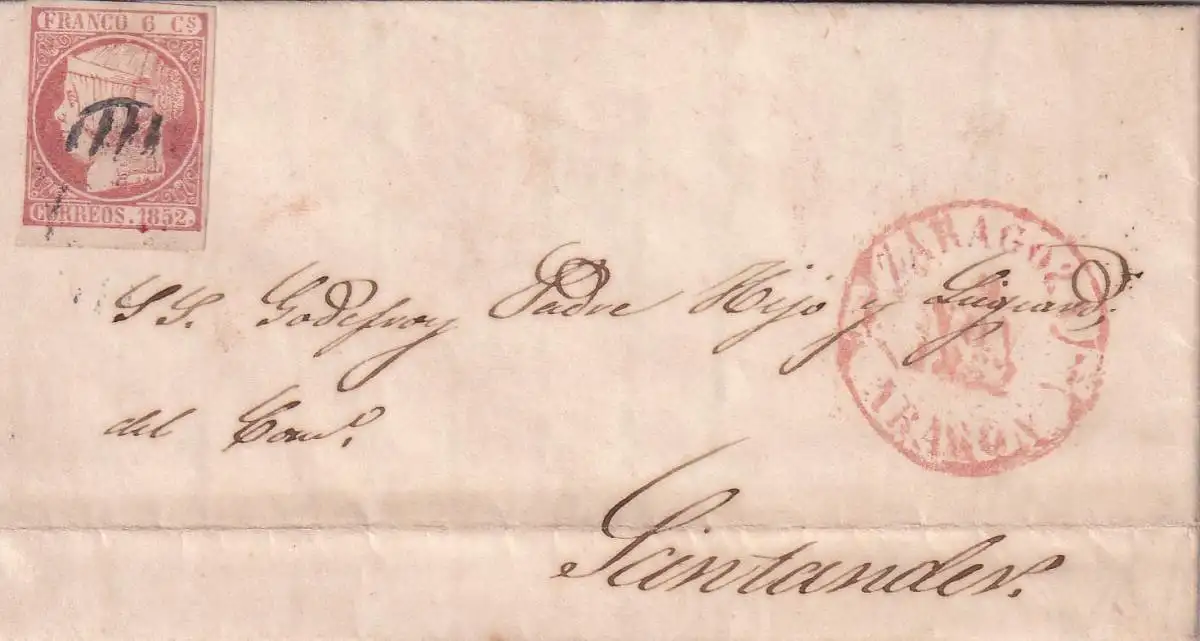 FRANCO 6 Cs
CORREOS. 1852.
ZARAGOZA
ARAGON.
S S. Godefroy Padre Hijo y
del Comº.
Santander.